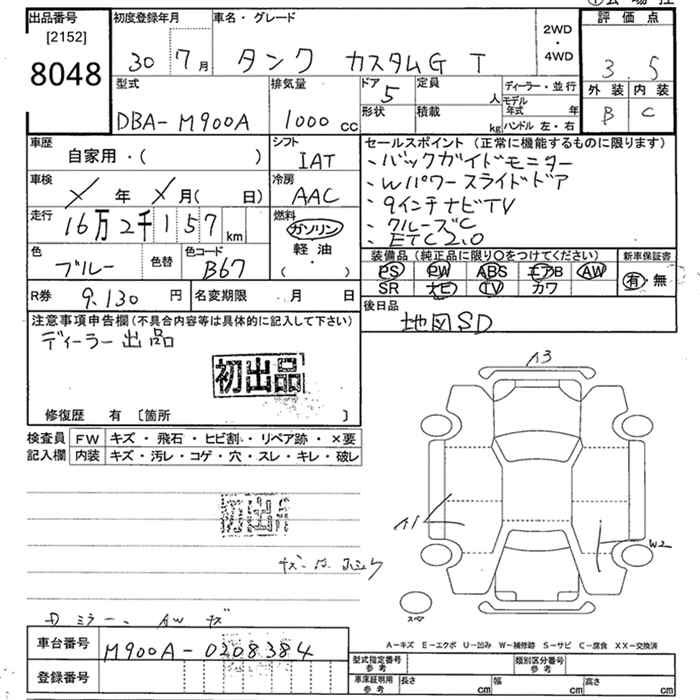 出品番号 [2152] 8048
初度登録年月 30 7月
車名・グレード タンク カスタムG T
2WD・4WD
評価点 3 5
外装 B 内装 C
型式 DBA-M900A
排気量 1000cc
ドア 5 形状
定員 人
積載 kg
ディーラー・並行
モデル年式 年
ハンドル 左・右
車歴 自家用・( )
シフト IAT
セールスポイント(正常に機能するものに限ります)
、バックガイドモニター
、Wパワースライドドア
、9インチナビTV
、クルーズC
、ETC2.0
車検 年 月( 日)
冷房 AAC
走行 16万2千157km
燃料 ガソリン 軽油 ・( )
色 ブルー 色替
色コード B67
装備品(純正品に限り○をつけてください) 新車保証書
PS PW ABS エアB AW 有・無
SR ナビ TV カワ
R券 9.130円 名変期限 月 日
後日品 地図SD
注意事項申告欄(不具合内容等は具体的に記入して下さい)
ディーラー出品
初出品
修復歴 有 〔箇所 〕
検査員 FW キズ・飛石・ヒビ割・リペア跡・×要
記入欄 内装 キズ・汚レ・コゲ・穴・スレ・キレ・破レ
初出品
A3
A1
W2
スペア
ミラー AW キズ
A-キズ E-エクボ U-凹み W-補修跡 S-サビ C-腐食 XX-交換済
車台番号 M900A-0208384
登録番号
型式指定番号 参考 類別区分番号 参考
車庫証明用 参考 長さ cm 幅 cm 高さ cm